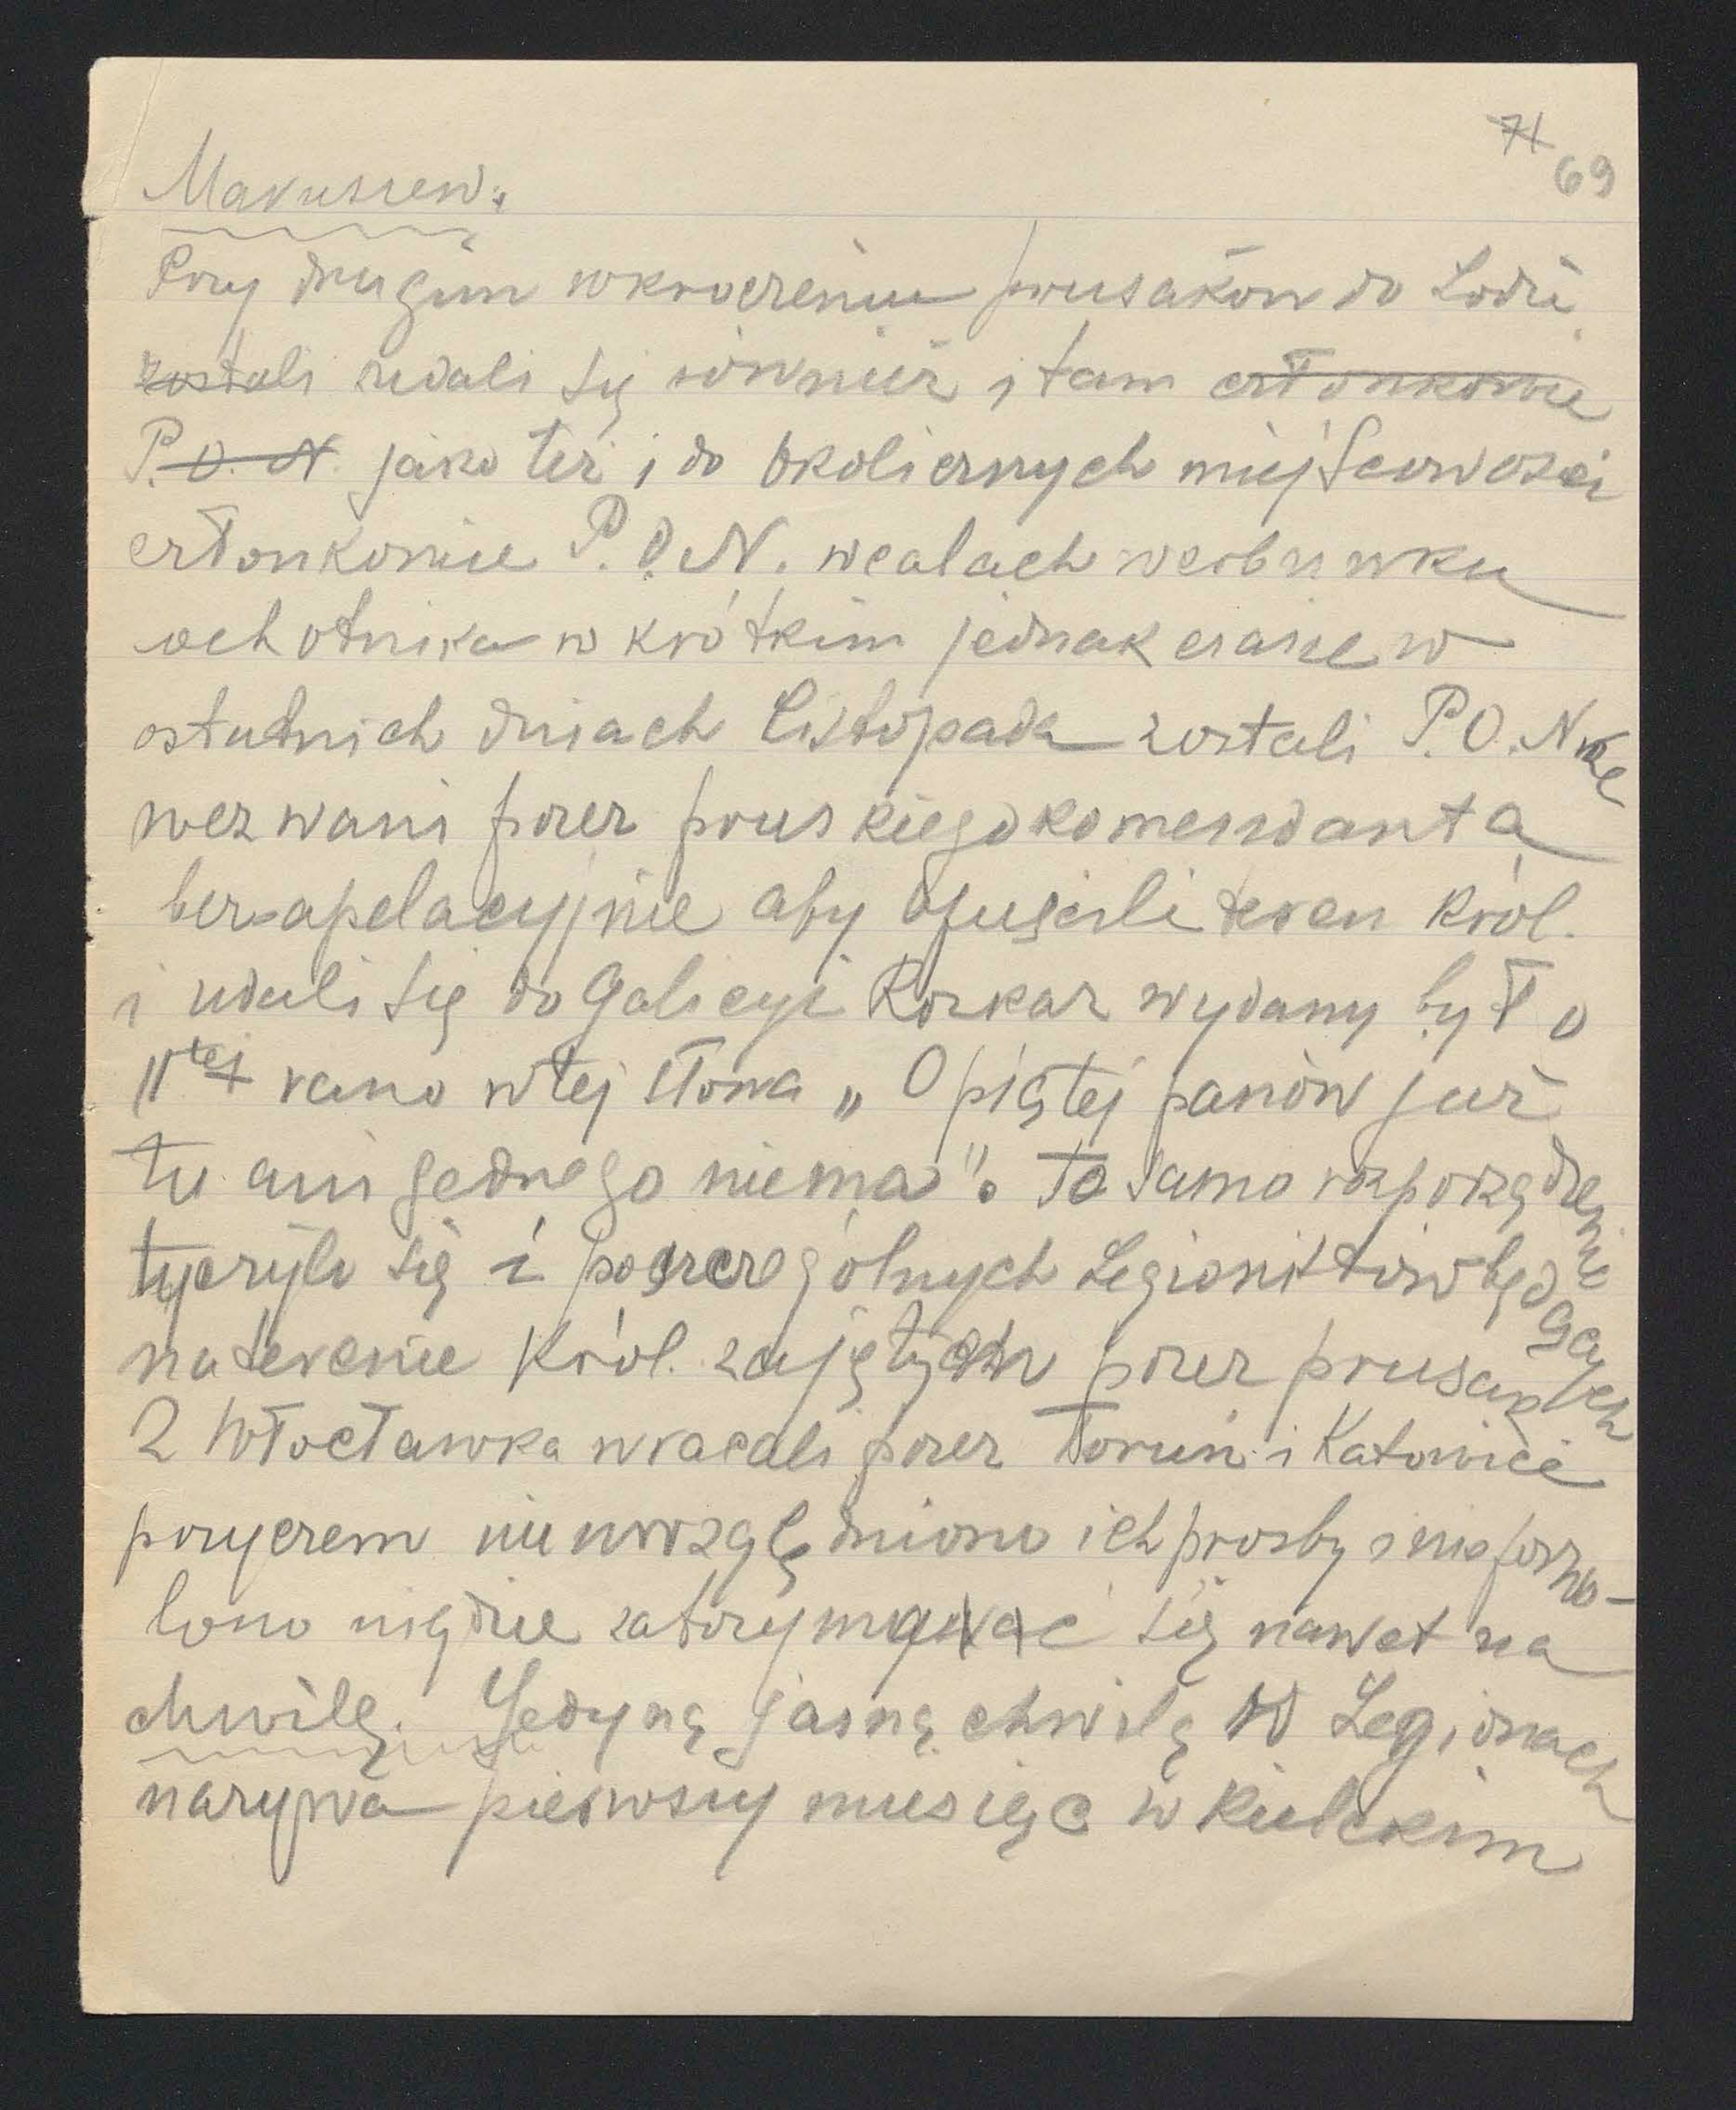 71
69
Makuszew:
Przy drugim wkroczeniu prusaków do Łodzi
zostali udali się również i tam członkowie
P.O.N. jako też i do okolicznych miejscowości
członkowie P.O.N. w calach werbunku
ochotnika w krótkim jednak czasie w
ostatnich dniach Listopada zostali P.O.N
wezwani przez pruskiego komendanta
bezapelacyjnie aby opuścili teren Król.
i udali się do Galicyi Rozkaz wydany był o
11tej rano w tej słowa „O piątej panów już
tu ani jednego niema". To samo rozporządzenie
tyczyło się i poszczególnych Legionistów będących
na terenie Król. zajętych przez prusak
Z Włocławka wracali przez Toruń i Katowice
przyczem nie uwzględniono ich prośby i nie pozwo-
lono nigdzie zatrzymać się nawet na
chwilę. Jedyną jasną chwilą w Legionach
nazywa pierwszy miesiąc w Kieleckim